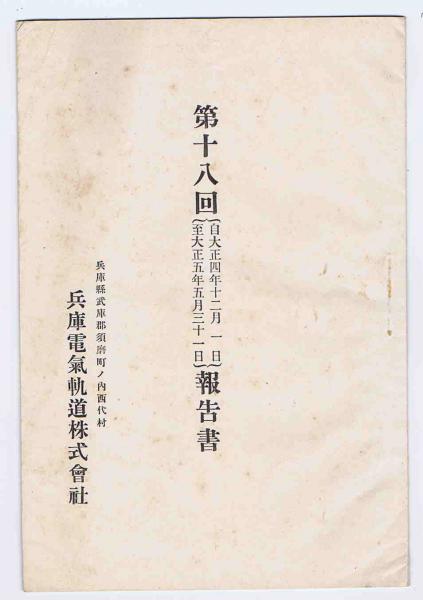 第十八回{自大正四年十二月 一日 至大正五年五月三十一日}報告書
兵庫縣武庫郡須磨町ノ內西代村
兵庫電氣軌道株式會社